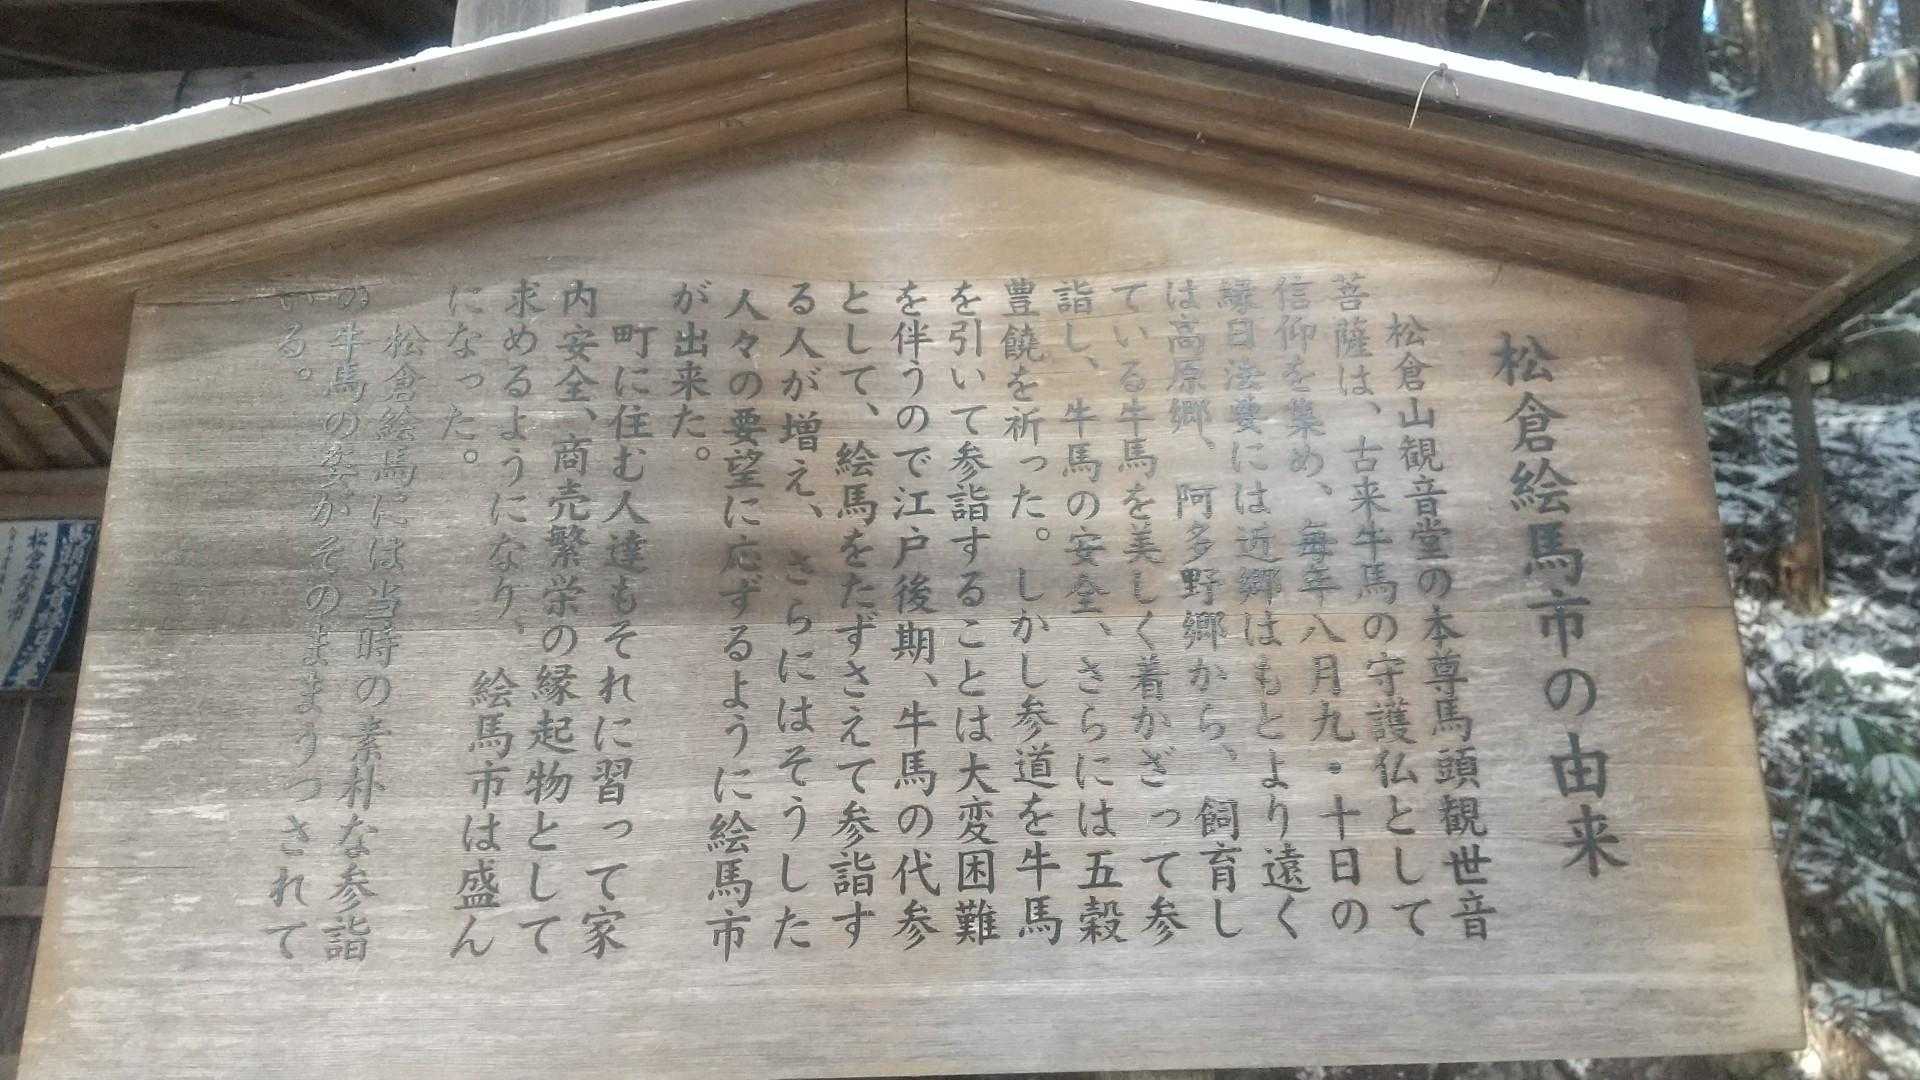 松倉絵馬市の由来
松倉山観音堂の本尊馬頭観世音
菩薩は、古来牛馬の守護仏として
信仰を集め、毎年八月九・十日の
縁日法要には近郷はもとより遠く
は高原郷、阿多野郷から、飼育し
ている牛馬を美しく着かざって参
詣し、牛馬の安全、さらには五穀
豊饒を祈った。しかし参道を牛馬
を引いて参詣することは大変困難
を伴うので江戸後期、牛馬の代参
として、絵馬をたずさえて参詣す
る人が増え、さらにはそうした
人々の要望に応ずるように絵馬市
が出来た。
町に住む人達もそれに習って家
内安全、商売繁栄の縁起物として
求めるようになり、絵馬市は盛ん
になった。
松倉絵馬には当時の素朴な参詣
の牛馬の姿がそのままうつされて
いる。
松倉絵馬市